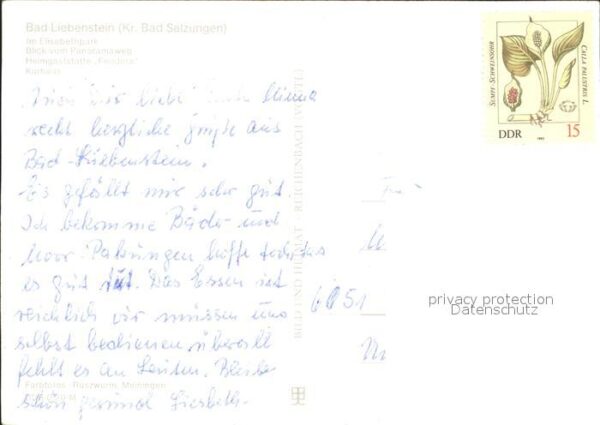 Bad Liebenstein (Kr. Bad Salzungen)
Im Elisabethpark
Blick vom Panoramaweg
Heimgaststätte „Feodora“
Kurhaus
liebe
recht herzliche Grüße aus
Bad-Liebenstein.
Es gefällt mir sehr gut.
Ich bekomme Bäder und
Moor-Pakungen hoffentlich das
es gut tut. Das Essen ist
reichlich wir müssen uns
selbst bedienen, überall
fehlt es an Leuten. Bleibe
Farbfotos: Ruszwurm, Meiningen
schön gesund Liesbeth.
BILD UND HEIMAT REICHENBACH (VOGTL)
SUMPF-SCHWEINSOHR
CALLA PALUSTRIS L.
DDR
1982
15
privacy protection
Datenschutz